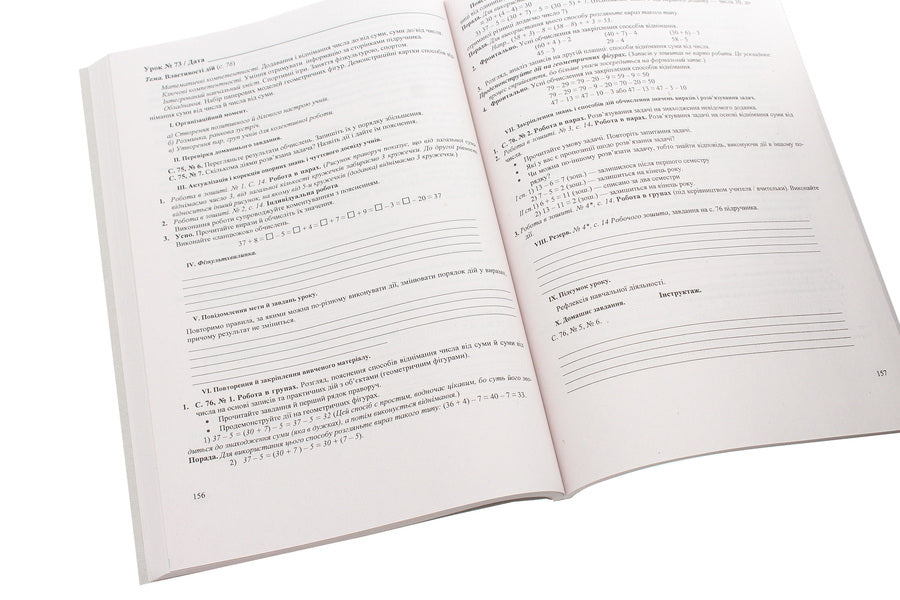 Урок № 73 / Дата
Тема. Властивості дій (с. 76)
Математичні компетентності. Додавання і віднімання числа до від суми, суми до від числа.
Ключові компетентності. Уміння отримувати інформацію за сторінками підручника.
Інтегрований навчальний зміст. Спортивні ігри. Заняття фізкультурою, спортом.
Обладнання. Набір паперових моделей геометричних фігур. Демонстраційні картки способів від-
німання числа від числа від суми.
І. Організаційний момент.
а) Створення позитивного й ділового настрою учнів.
б) Розминка, ранкова зустріч
в) Утворення пар, груп учнів для колективної роботи.
ІІ. Перевірка домашнього завдання.
С. 75, № 6. Перегляньте результати обчислень. Запишіть їх у порядку збільшення.
С. 75, № 7. Скількома діями розв'язана задача? Назвіть дії і дайте їм пояснення.
ІІІ. Актуалізація і корекція опорних знань і чуттєвого досвіду учнів.
1. Робота в зошиті. № 1, С. 14. Робота в парах. (Рисунок праворуч показує, що від загальної суми
віднімаємо число 3, від загальної кількості кружечків забираємо 3 кружечки. До другої рівності
відноситься інший рисунок, на якому від 5-и кружечків (доданка) віднімаємо 3 кружечки.)
2. Робота в зошиті. № 2, с. 14. Індивідуальна робота
Виконання роботи супроводжуйте коментуванням з поясненням.
3. Усно. Прочитайте вирази й обчисліть їх значення.
Виконайте «ланцюжок» обчислень.
37 + 8 = □ − 5 = □ + 4 = □ + 7 = □ + 9 = □ − 3 = □ − 20 = 37
IV. Фізкультхвилинка.
V. Повідомлення мети й завдань уроку.
Повторимо правила, за якими можна по-різному виконувати дії, змінювати порядок дій у виразах,
причому результат не зміниться.
VI. Повторення й закріплення вивченого матеріалу.
1. С. 76, № 1. Робота в групах. Розгляд, пояснення способів віднімання числа від суми й суми від
числа на основі записів та практичних дій з об'єктами (геометричними фігурами).
• Прочитайте завдання й перший рядок праворуч.
• Продемонструйте дії на геометричних фігурах.
1) 37 − 5 = (30 + 7) − 5 = 37 − 5 = 32 (Цей спосіб є простим, водночас цікавим, бо суть його зво-
диться до знаходження суми (яка в дужках), а потім виконується віднімання.)
Порада. Для використання цього способу розгляньте вираз такого типу: (36 + 4) − 7 = 40 − 7 = 33.
2) 37 − 5 = (30 + 7) − 5 = 30 + (7 − 5).
156
= 30 + (4 − 4) = 30
Порада. Для використання цього способу розгляньте вираз такого типу.
Напр. (58 + 3) − 8 = (58 − 8) + + 3 = 53.
2. Фронтально. Усні обчислення на закріплення способів віднімання.
(60 + 4) − 2 (40 + 7) − 4 (30 + 6) − 3
65 − 3 29 − 4 58 − 5
3. Розгляд, аналіз записів на другій плашці: способи віднімання суми від числа.
Продемонструйте дії на геометричних фігурах. (Записів у зошитах не варто робити. Це ускладнює
процес сприйняття, бо більше уваги зосередиться на формальний запис.)
4. Фронтально. Усні обчислення на закріплення способів віднімання.
79 − 29 = 79 − 20 − 9 = 59 − 9 = 50
79 − 29 = 79 − 9 − 20 = 70 − 20 = 50
47 − 13 = 47 − 10 − 3 або 47 − 13 = 47 − 3 − 10
VII. Закріплення знань і способів дій обчислення значень виразів і розв'язування задач.
1. С. 76, № 2. Робота в парах. Розв'язування задачі на знаходження невідомого доданка.
2. Робота в зошиті. № 3, с. 14. Робота в парах. Розв'язування задачі на основі віднімання суми від
числа.
• Прочитайте умову задачі. Повторіть запитання задачі.
• Які у вас є пропозиції щодо розв'язання задачі?
• Чи можна по-іншому розв'язати задачу, тобто знайти відповідь, виконуючи дії в іншому по-
рядку?
І сп. 1) 13 − 6 = 7 (зош.) — залишилося після першого семестру
2) 7 − 5 = 2 (зош.) — залишиться на кінець року
ІІ сп. 1) 6 + 5 = 11 (зош.) — списано за два семестри
2) 13 − 11 = 2 (зош.) — залишиться на кінець року.
3. Робота в зошиті. № 4*, с. 14. Робота в групах (під керівництвом учителя / вчительки). Виконайте
дії.
VIII. Резерв. № 4*, с. 14 Робочого зошита, завдання на с. 76 підручника.
IX. Підсумок уроку.
Рефлексія навчальної діяльності.
X. Домашнє завдання. Інструктаж.
С. 76, № 5, № 6.
157